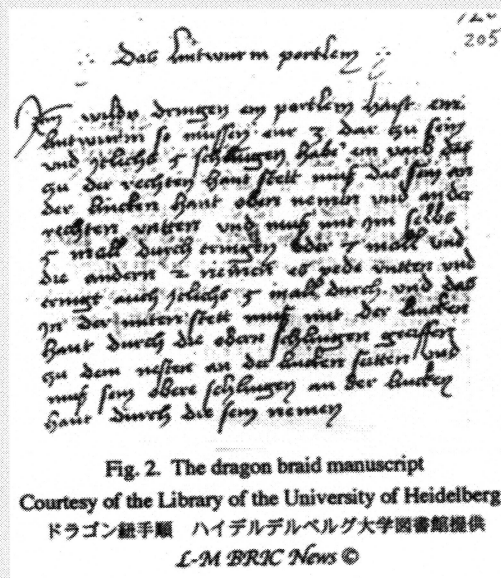 205
Das lintwurm portlein
wildu dringen ein portlein haist ein
lintwurm so mussen eur 3 dar zu sein
und itlichs 5 schlingen habe ein varb das
zu der rechten hant stett muß das sein an
der lincken hant oben nemen und an der
rechten untten und muß mit im selbs
5 mall durch dringen oder mall und
die andern 2 nemen es pede untten und
dringt auch itlichs 5 mall durch und das
in der mitten stett muß mit der lincken
hant durch die obern schlingen greiffen
zu dem nesten an der lincken seitten und
muß sein obere schlingen an der lincken
hant durch die sein nemen
Fig. 2. The dragon braid manuscript
Courtesy of the Library of the University of Heidelberg
ドラゴン紐手順 ハイデルデルベルグ大学図書館提供
L-M BRIC News ©